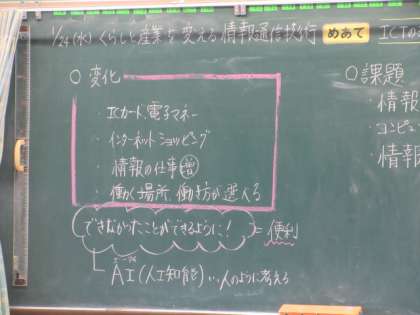 1/24(水) くらしと産業を変える情報通信技術 めあて ICTの
○変化
・ICカード、電子マネー
・インターネットショッピング
・情報の仕事 増
・働く場所、働き方が選べる
できなかったことができるように! = 便利
AI(人工知能)… 人のように考える
○課題
・情報
・コンピュ
・情報